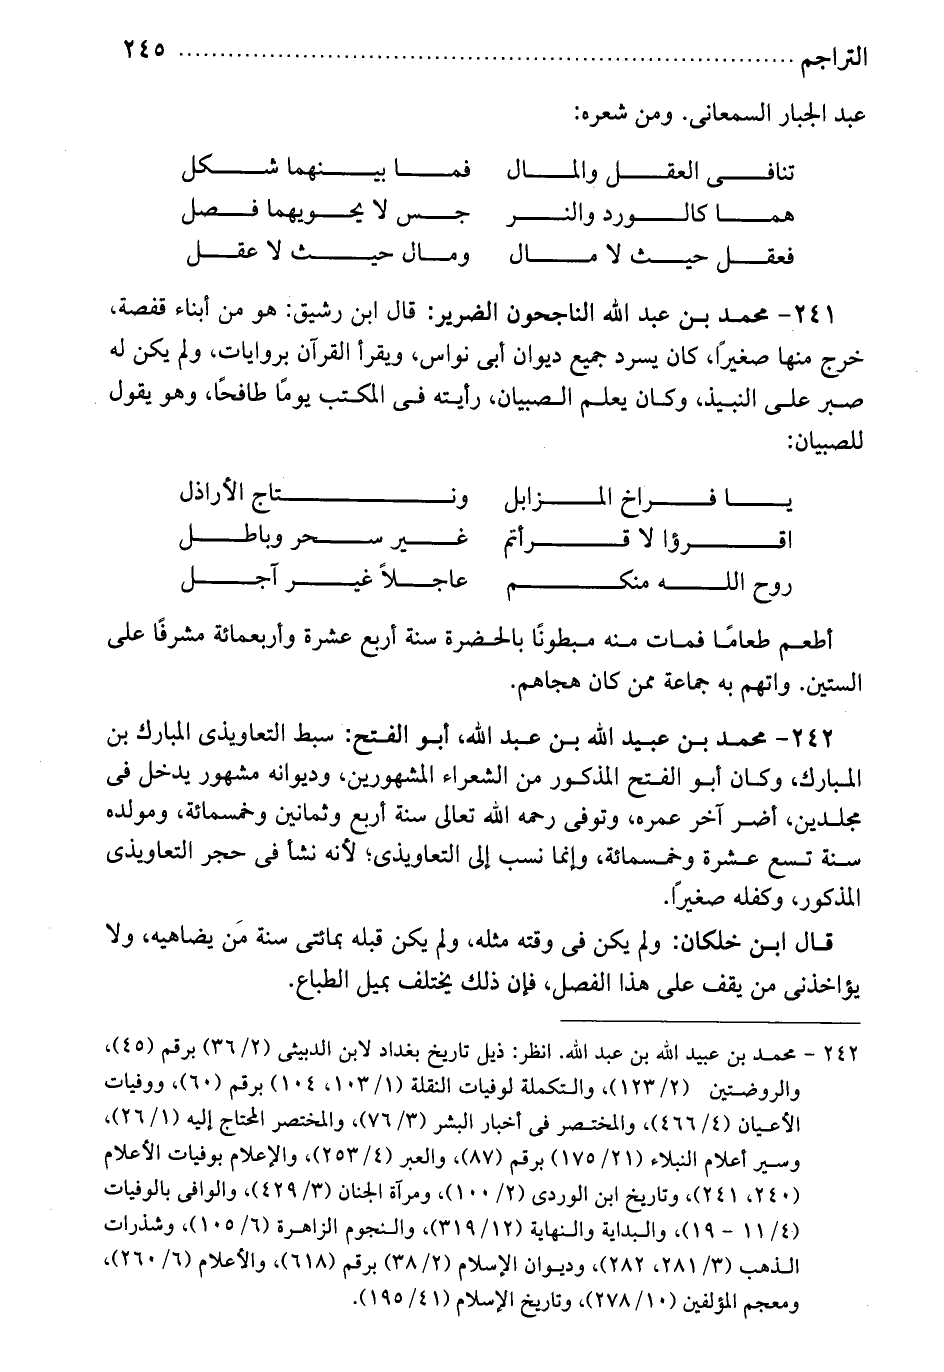 التراجم ........................................................................ ٢٤٥
عبد الجبار السمعانى. ومن شعره:
تنافـــى العقـــل والمـــال فمـــا بيـــنهما شـــكل
همـــا كالـــورد والنـــر جـــس لا يحـــويهما فـــصل
فعقـــل حيـــث لا مـــال ومـــال حيـــث لا عقـــل
٢٤١- محمد بن عبد الله الناجحون الضرير: قال ابن رشيق: هو من أبناء قفصة،
خرج منها صغيرًا، كان يسرد جميع ديوان أبى نواس، ويقرأ القرآن بروايات، ولم يكن له
صبر على النبيذ، وكان يعلم الصبيان، رأيته فى المكتب يومًا طافحًا، وهو يقول
للصبيان:
يـــا فـــراخ المـــزابل ونـــتاج الأراذل
اقـــرؤا لا قـــرأتم غـــير ســـحر وباطـــل
روح اللـــه منكـــم عاجـــلاً غيـــر آجـــل
أطعم طعامًا فمات منه مبطونًا بالحضرة سنة أربع عشرة وأربعمائة مشرفًا على
الستين. واتهم به جماعة ممن كان هجاهم.
٢٤٢- محمد بن عبيد الله بن عبد الله، أبو الفتح: سبط التعاويذى المبارك بن
المبارك، وكان أبو الفتح المذكور من الشعراء المشهورين، وديوانه مشهور يدخل فى
مجلدين، أضر آخر عمره، وتوفى رحمه الله تعالى سنة أربع وثمانين وخمسمائة، ومولده
سنة تسع عشرة وخمسمائة، وإنما نسب إلى التعاويذى؛ لأنه نشأ فى حجر التعاويذى
المذكور، وكفله صغيرًا.
قال ابن خلكان: ولم يكن فى وقته مثله، ولم يكن قبله بمائتى سنة مَن يضاهيه، ولا
يؤاخذنى من يقف على هذا الفصل، فإن ذلك يختلف بميل الطباع.
٢٤٢ - محمد بن عبيد الله بن عبد الله. انظر: ذيل تاريخ بغداد لابن الدبيثى (٣٦/٢) برقم (٤٥)،
والروضتين (١٢٣/٢)، والتكملة لوفيات النقلة (١٠٣/١، ١٠٤) برقم (٦٠)، ووفيات
الأعيان (٤٦٦/٤)، والمختصر فى أخبار البشر (٧٦/٣)، والمختصر المحتاج إليه (٢٦/١)،
وسير أعلام النبلاء (١٧٥/٢١) برقم (٨٧)، والعبر (٢٥٣/٤)، والإعلام بوفيات الأعلام
(٢٤٠، ٢٤١)، وتاريخ ابن الوردى (١٠٠/٢)، ومرآة الجنان (٤٢٩/٣)، والوافى بالوفيات
(١١/٤ - ١٩)، والبداية والنهاية (٣١٩/١٢)، والنجوم الزاهرة (١٠٥/٦)، وشذرات
الذهب (٢٨١/٣، ٢٨٢)، وديوان الإسلام (٣٨/٢) برقم (٦١٨)، والأعلام (٢٦٠/٦)،
ومعجم المؤلفين (٢٧٨/١٠)، وتاريخ الإسلام (١٩٥/٤١).